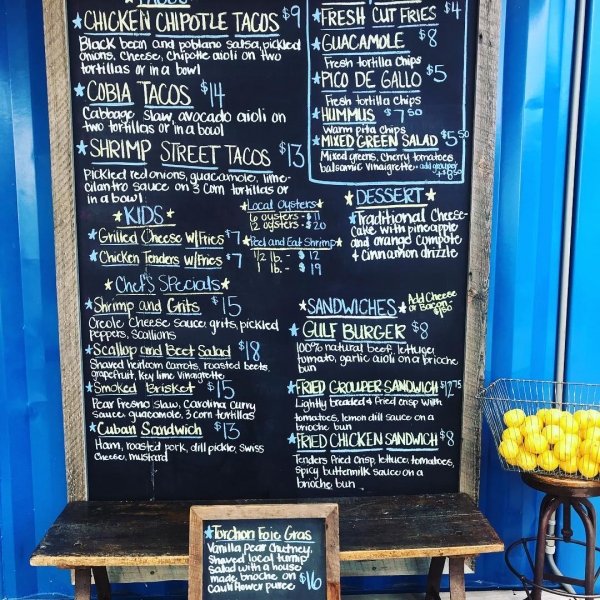 TACOS
CHICKEN CHIPOTLE TACOS $9
Black bean and poblano salsa, pickled
onions, cheese, Chipotle aioli on two
tortillas or in a bowl
COBIA TACOS $14
Cabbage slaw, avocado aioli on
two tortillas or in a bowl
SHRIMP STREET TACOS $13
Pickled red onions, guacamole, lime-
cilantro sauce on 3 corn tortillas or
in a bowl
KIDS
Grilled Cheese w/Fries $7
Chicken Tenders w/Fries $7
Local Oysters
6 oysters - $11
12 oysters - $20
Peel and Eat Shrimp
1/2 lb. - $12
1 lb. - $19
Chef's Specials
Shrimp and Grits $15
Creole cheese sauce, grits, pickled
peppers, scallions
Scallop and Beet Salad $18
Shaved heirloom carrots, roasted beets,
grapefruit, key lime vinaigrette
Smoked Brisket $15
Pear Fresno slaw, Carolina curry
sauce, guacamole, 3 corn tortillas
Cuban Sandwich $13
Ham, roasted pork, dill pickle, swiss
cheese, mustard
FRESH CUT FRIES $4
GUACAMOLE $8
Fresh tortilla Chips
PICO DE GALLO $5
Fresh tortilla Chips
HUMMUS $7.50
Warm pita chips
MIXED GREEN SALAD $5.50
Mixed greens, Cherry tomatoes
balsamic vinaigrette - add grouper
DESSERT
Traditional Cheese-
cake with pineapple
and orange compote
+ cinnamon drizzle
SANDWICHES
Add Cheese
or Bacon -
GULF BURGER $8
100% natural beef, lettuce,
tomato, garlic aioli on a brioche
bun
FRIED GROUPER SANDWICH $12.75
Lightly breaded + fried crisp with
tomatoes, lemon dill sauce on a
brioche bun
FRIED CHICKEN SANDWICH $8
Tenders fried crisp, lettuce, tomatoes,
spicy buttermilk sauce on a
brioche bun
Torchon Foie Gras
Vanilla pear chutney,
shaved local turnip
salad with a house
made brioche on
cauliflower puree $16